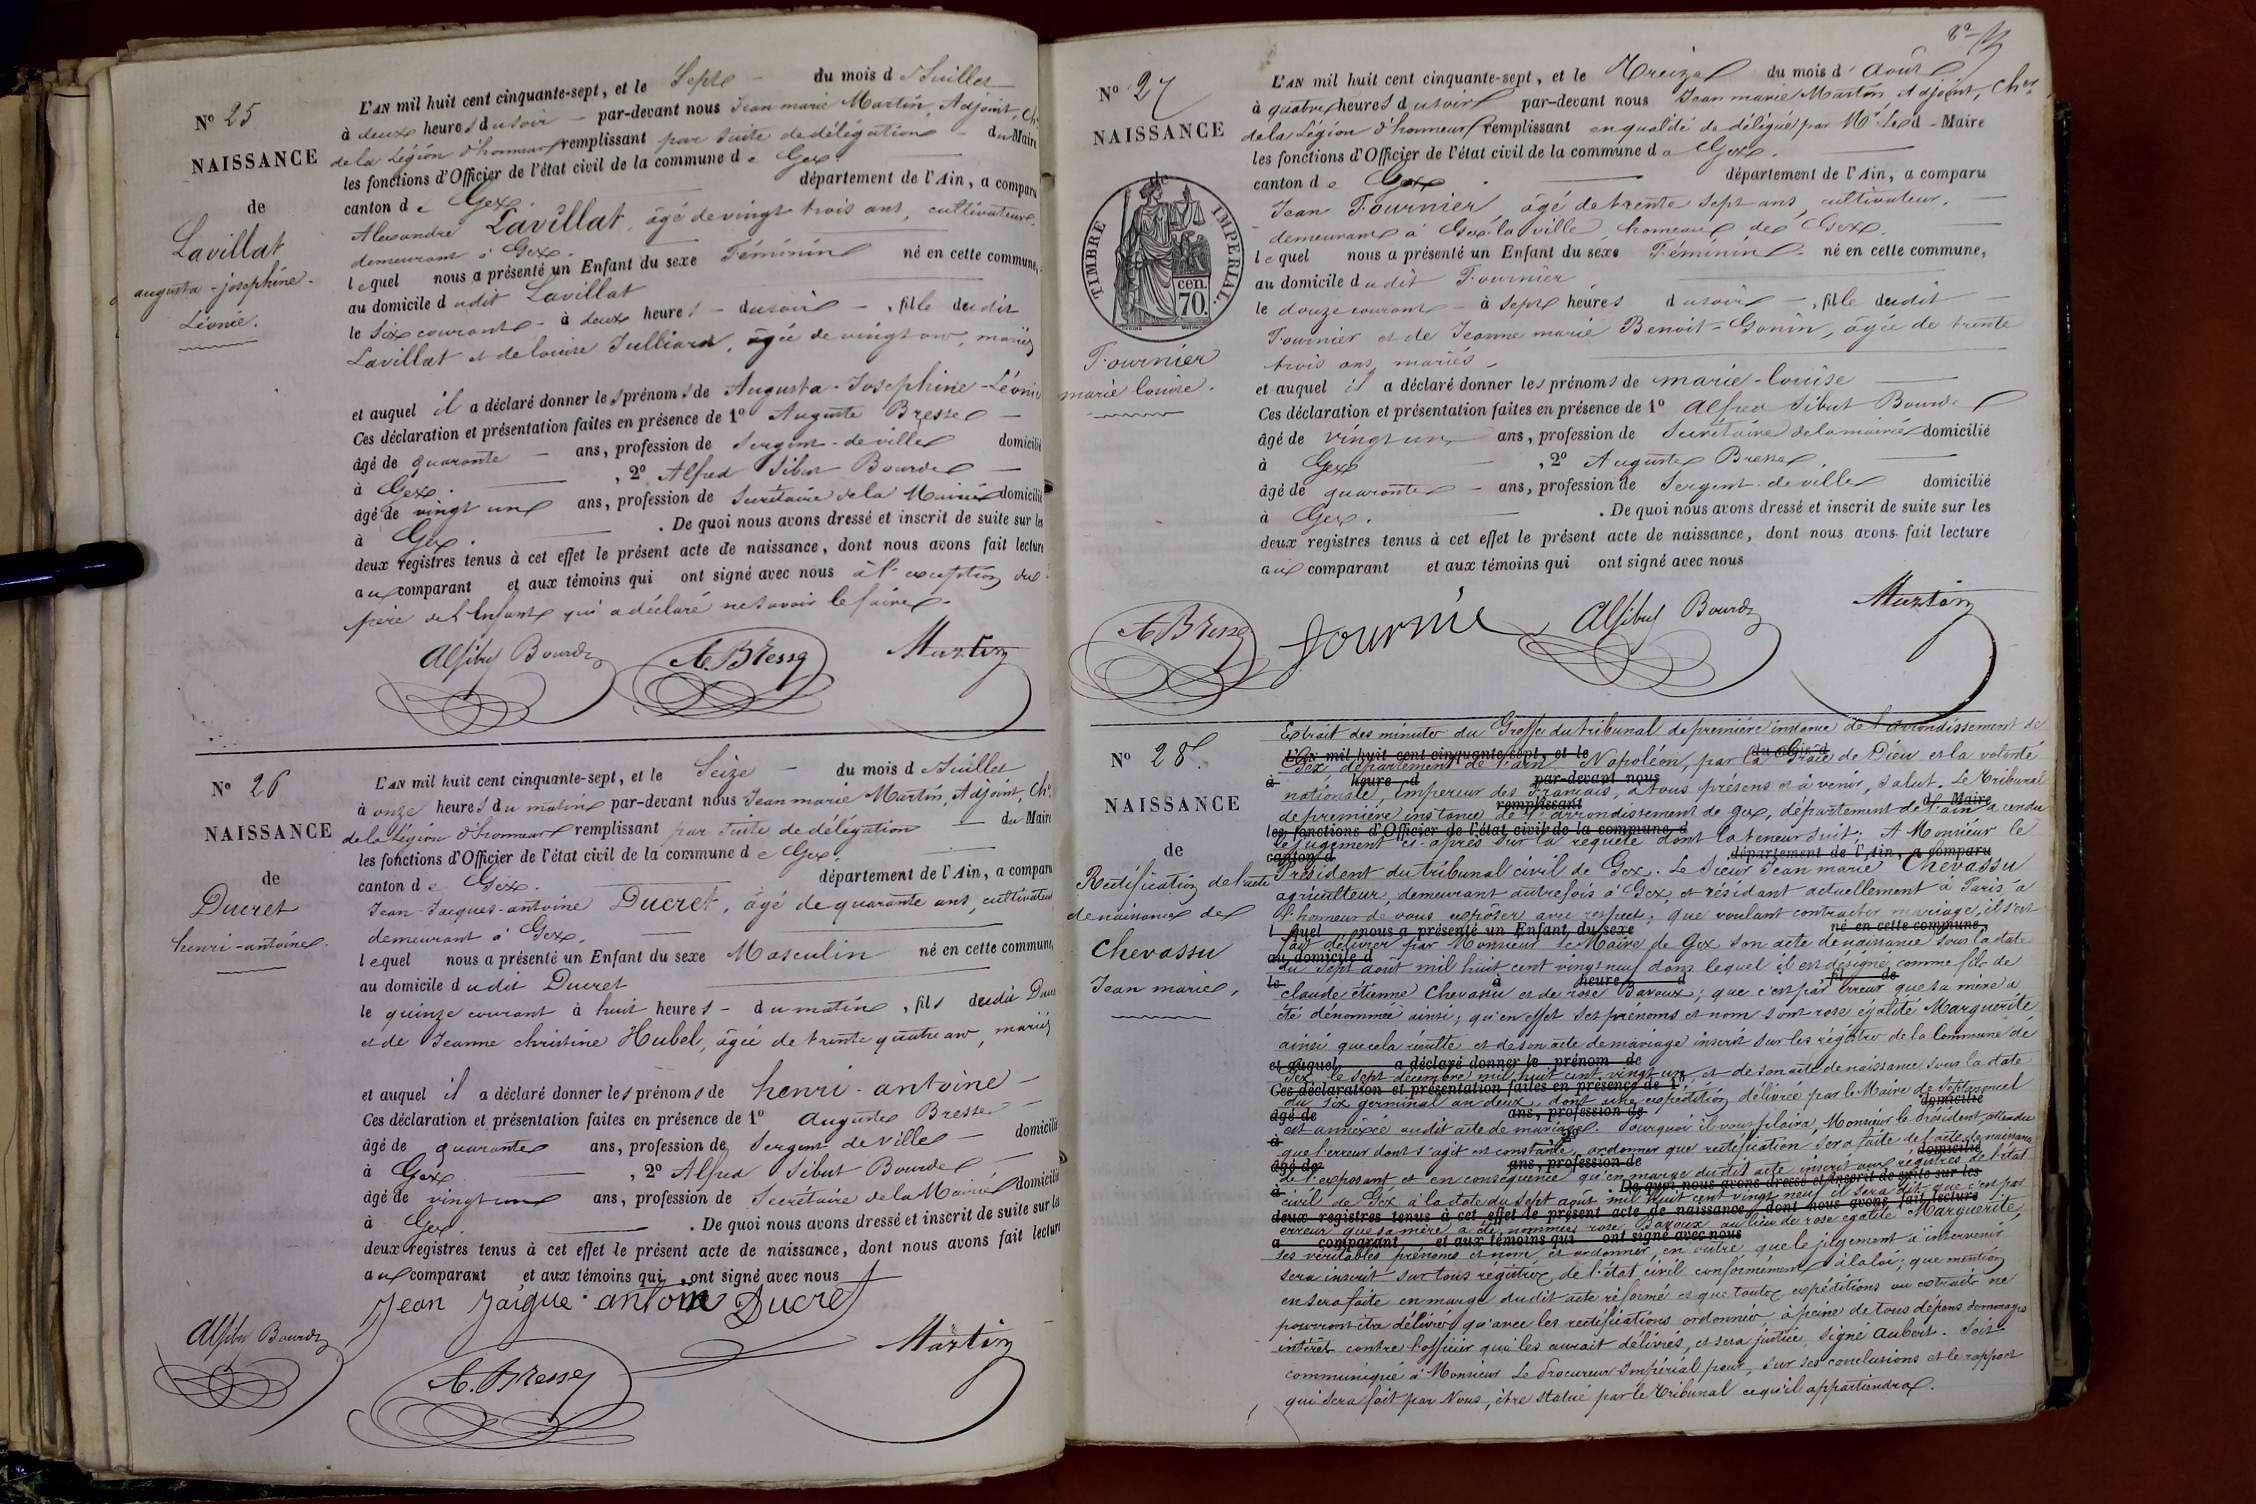 Nº 25
NAISSANCE
de
Lavillat
augusta-josephine-
Léonie.
L'AN mil huit cent cinquante-sept, et le Sept - du mois d Juillet
à deux heures du soir - par-devant nous Jean marie Martin, Adjoint, Chr
de la Légion d'honneur remplissant par suite de délégation - du Maire
les fonctions d'Officier de l'état civil de la commune de Gex.
canton de Gex. département de l'Ain, a comparu
Alexandre Lavillat, âgé de vingt trois ans, cultivateur,
demeurant à Gex.
lequel nous a présenté un Enfant du sexe Féminin né en cette commune,
au domicile dudit Lavillat
le six courant - à deux heures - du soir -, fille dudit
Lavillat et de louise Julliard, âgée de vingt ans, mariés
et auquel il a déclaré donner les prénoms de Augusta-Josephine-Léonie
Ces déclaration et présentation faites en présence de 1º Auguste Bresse -
âgé de quarante - ans, profession de Sergent-de ville domicilié
à Gex. , 2º Alfred Sibut Bourde -
âgé de vingt un ans, profession de Secrétaire de la Mairie domicilié
à Gex. . De quoi nous avons dressé et inscrit de suite sur les
deux registres tenus à cet effet le présent acte de naissance, dont nous avons fait lecture
aux comparant et aux témoins qui ont signé avec nous à l'exception du
père de l'Enfant qui a déclaré ne savoir le faire.
Alf Sibut Bourde A. Bresse Martin
Nº 26
NAISSANCE
de
Ducret
henri-antoine.
L'AN mil huit cent cinquante-sept, et le Seize - du mois d Juillet
à onze heures du matin par-devant nous Jean marie Martin, Adjoint, Chr
de la Légion d'honneur remplissant par suite de délégation - du Maire
les fonctions d'Officier de l'état civil de la commune de Gex.
canton de Gex. département de l'Ain, a comparu
Jean-Jacques-antoine Ducret, âgé de quarante ans, cultivateur
demeurant à Gex.
lequel nous a présenté un Enfant du sexe Masculin né en cette commune,
au domicile dudit Ducret
le quinze courant à huit heures - du matin, fils dudit Ducret
et de Jeanne christine Hubel, âgée de trente quatre ans, mariés
et auquel il a déclaré donner les prénoms de henri-antoine -
Ces déclaration et présentation faites en présence de 1º Auguste Bresse -
âgé de quarante ans, profession de Sergent de ville - domicilié
à Gex. , 2º Alfred Sibut Bourde -
âgé de vingt un ans, profession de Secrétaire de la Mairie domicilié
à Gex. . De quoi nous avons dressé et inscrit de suite sur les
deux registres tenus à cet effet le présent acte de naissance, dont nous avons fait lecture
aux comparant et aux témoins qui ont signé avec nous
Jean Jaique antoine Ducret
Alf Sibut Bourde A. Bresse Martin
Nº 27
NAISSANCE
de
TIMBRE IMPÉRIAL.
cen. 70.
Fournier
marie louise.
L'AN mil huit cent cinquante-sept, et le Treize du mois d'Août
à quatre heures du soir par-devant nous Jean marie Martin, Adjoint, Chr
de la Légion d'honneur remplissant en qualité de délégué par Mr Le d - Maire
les fonctions d'Officier de l'état civil de la commune de Gex.
canton de Gex. département de l'Ain, a comparu
Jean Fournier, âgé de trente sept ans, cultivateur,
demeurant à Gex-la ville, hameau de Gex.
lequel nous a présenté un Enfant du sexe Féminin - né en cette commune,
au domicile dudit Fournier
le douze courant - à sept heures du soir -, fille dudit
Fournier et de Jeanne marie Benoit-Gonin, âgée de trente
trois ans, mariés -
et auquel il a déclaré donner les prénoms de marie-louise
Ces déclaration et présentation faites en présence de 1º Alfred Sibut Bourde
âgé de vingt un ans, profession de Secrétaire de la mairie domicilié
à Gex , 2º Auguste Bresse.
âgé de quarante - ans, profession de Sergent-de ville domicilié
à Gex. . De quoi nous avons dressé et inscrit de suite sur les
deux registres tenus à cet effet le présent acte de naissance, dont nous avons fait lecture
aux comparant et aux témoins qui ont signé avec nous
A. Bresse fournié Alf Sibut Bourde Martin
Nº 28.
NAISSANCE
de
Rectification de l'acte
de naissance de
Chevassu
Jean marie,
Extrait des minutes du Greffe du tribunal de première instance de l'arrondissement de
Gex département de l'ain. Napoléon, par la Grâce de Dieu et la volonté
nationale, Empereur des Français, à tous présens et à venir, salut. Le Tribunal
de première instance de l'arrondissement de Gex, département de l'ain a rendu
le jugement ci-après sur la requête dont la teneur suit: A Monsieur le
Président du tribunal civil de Gex. Le Sieur Jean marie Chevassu
agriculteur, demeurant autrefois à Gex, et résidant actuellement à Paris, a
l'honneur de vous exposer avec respect; que voulant contracter mariage, il s'est
fait délivrer par Monsieur le Maire de Gex son acte de naissance sous la date
du sept août mil huit cent vingt neuf dans lequel il est désigné comme fils de
claude étienne Chevassu et de rose Bavoux; que c'est par erreur que sa mère a
été dénommée ainsi; qu'en effet ses prénoms et nom sont rose égalité Marguerite
ainsi que cela résulte et de son acte de mariage inscrit sur les régistres de la Commune de
Gex le sept décembre mil huit cent vingt un et de son acte de naissance sous la date
du six germinal an deux, dont une expédition délivrée par le Maire de Septmoncel
est annexée audit acte de mariage. Pourquoi il vous plaira, Monsieur le Président, attendu
que l'erreur dont s'agit est constante, ordonner que rectification sera faite de l'acte de naissance
de l'exposant et en conséquence qu'en marge dudit acte inscrit aux régistres de l'état
civil de Gex à la date du sept août mil huit cent vingt neuf il sera dit que c'est par
erreur que sa mère a été nommée rose Bavoux au lieu de rose égalité Marguerite,
ses véritables prénoms et nom et ordonner, en outre que le jugement à intervenir
sera inscrit sur tous régistres de l'état civil conformément à la loi; que mention
en sera faite en marge dudit acte réformé et que toutes expéditions ou extraits ne
pourront être délivrés qu'avec les rectifications ordonnées, à peine de tous dépens dommages
intérêts contre l'officier qui les aurait délivrés, et sera justice, signé Aubert. Soit
communiqué à Monsieur Le Procureur Impérial pour, sur ses conclusions et le rapport
qui sera fait par Nous, être statué par le Tribunal ce qu'il appartiendra.